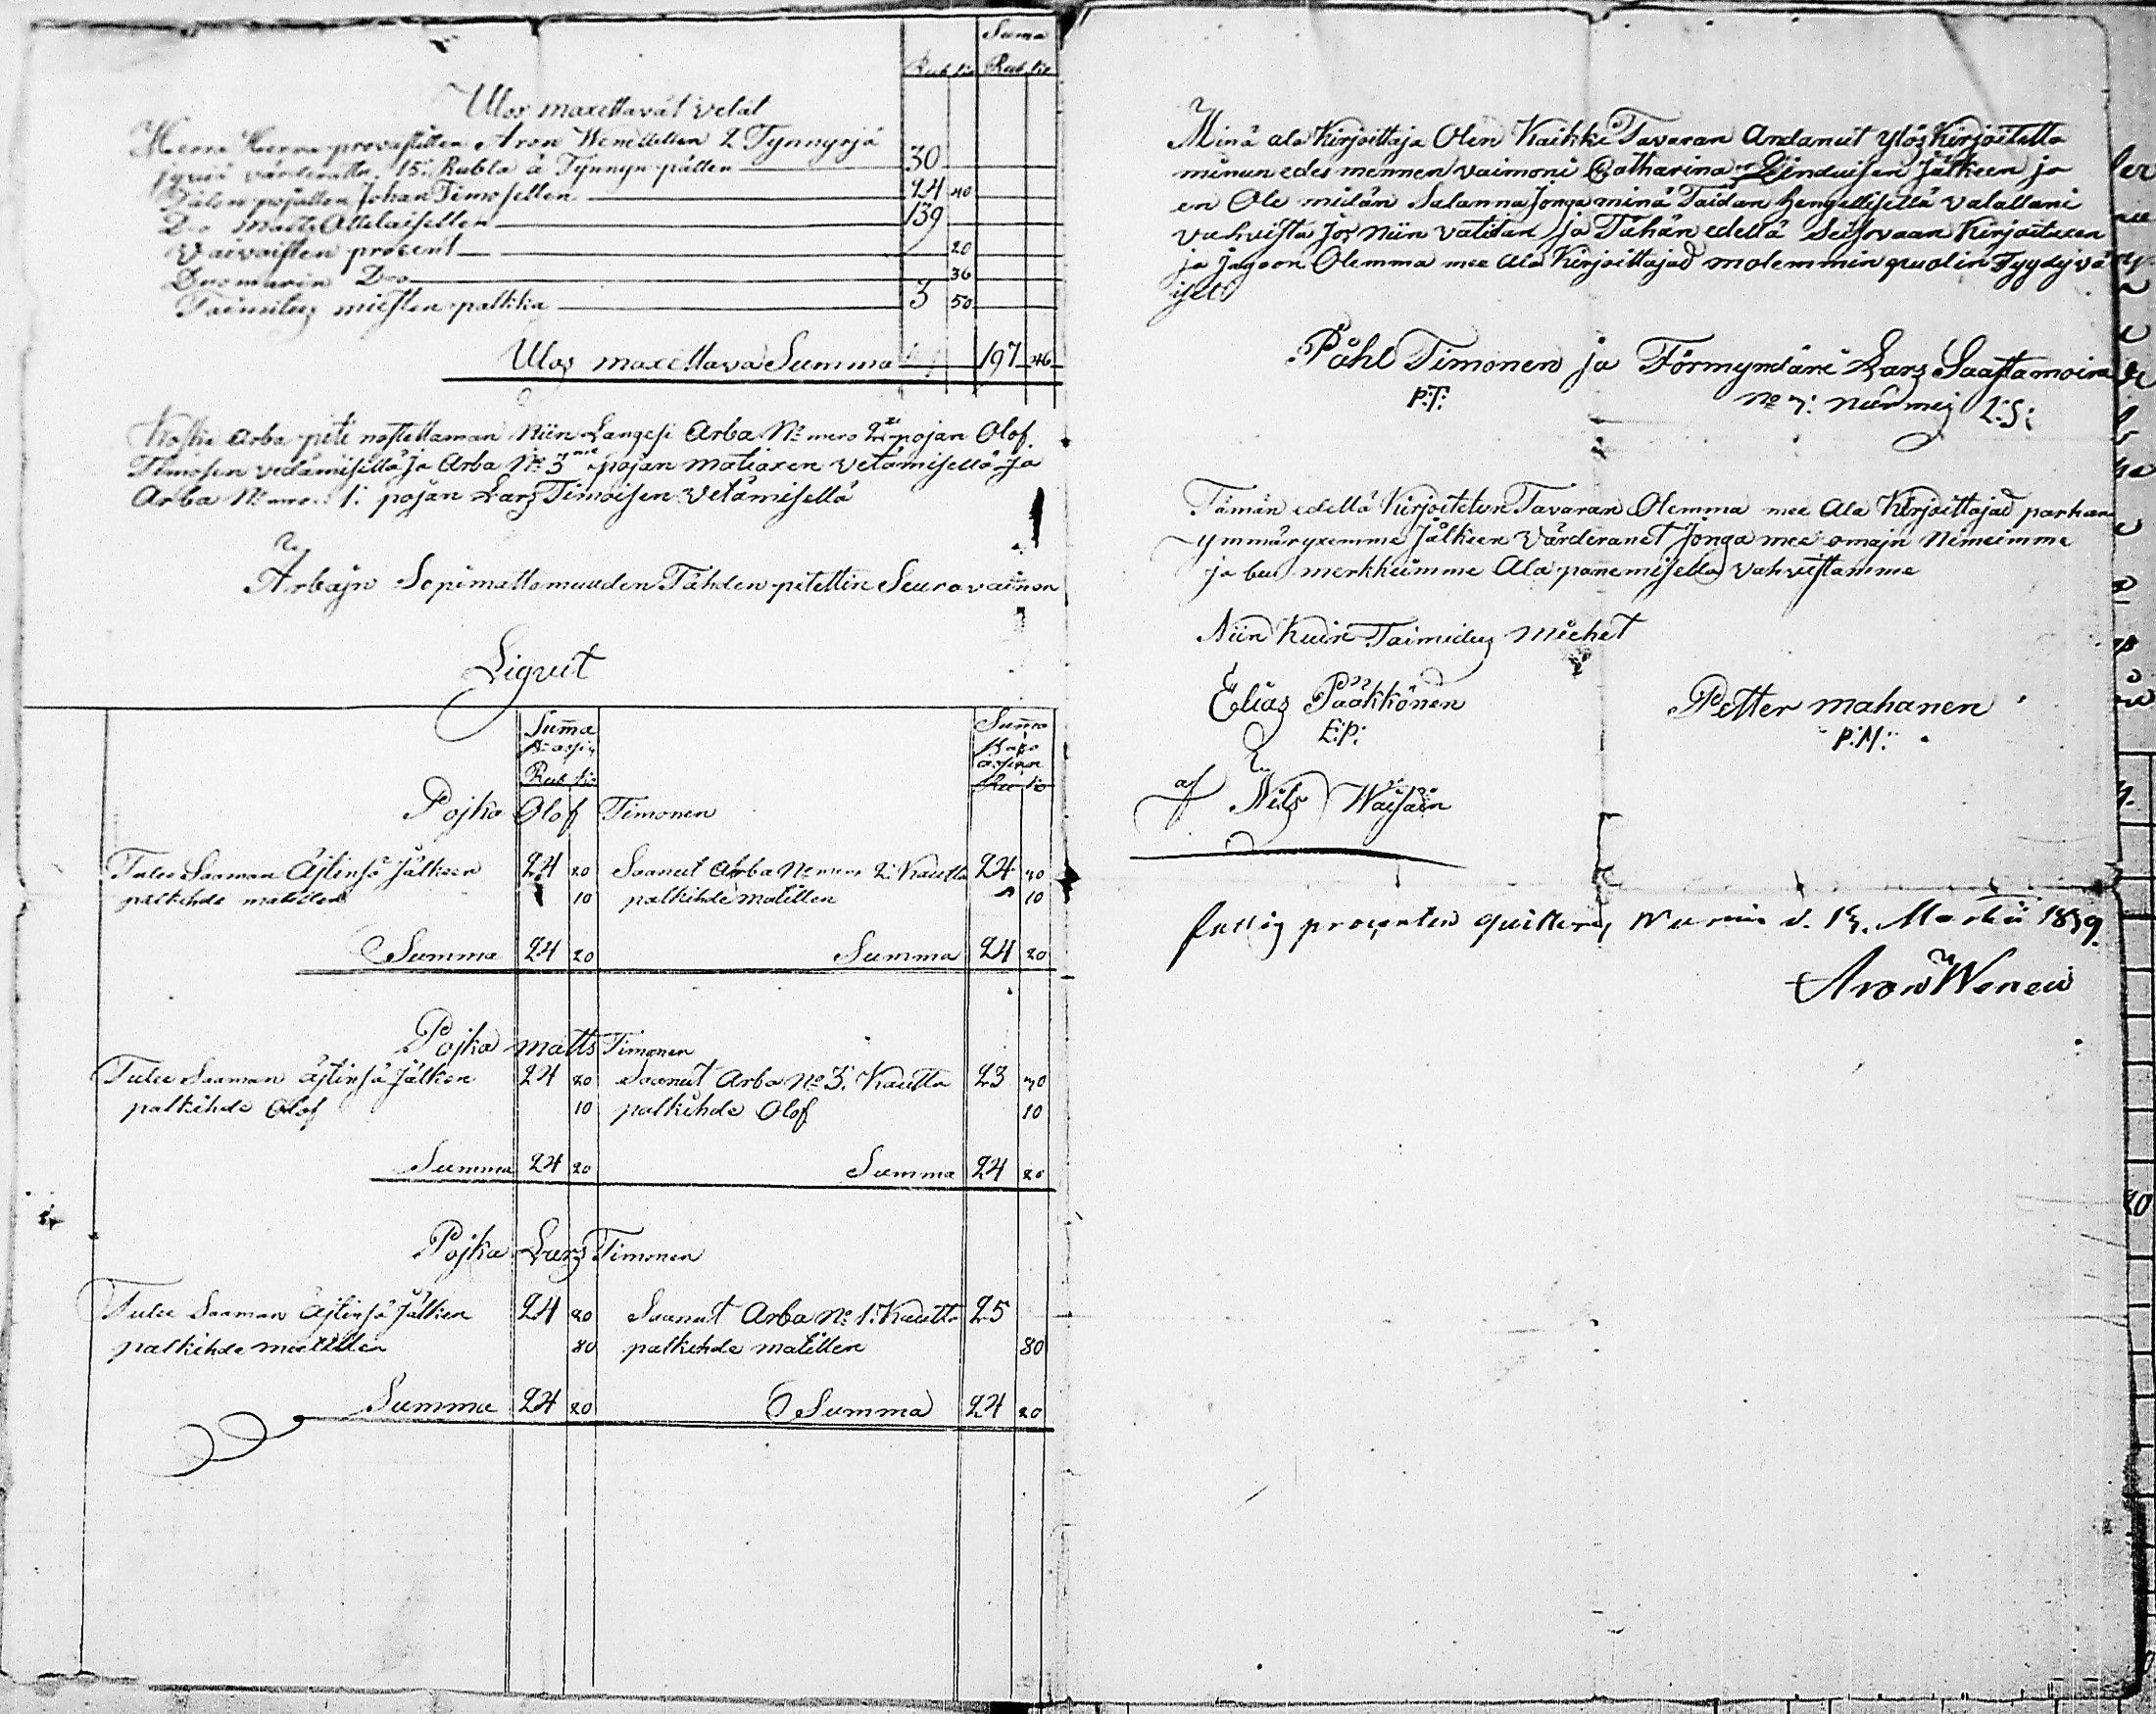 Suma
Rub. Ko Rub. Ko
Ulos maxettavat velat
Herra Herra provastillen Aron Wenellellen 2 Tynnyrjä
jyviä värderattu 15: Rubla à Tynnyn pällen 30
pojallen Johan Timosellen 24 40
Do Matts Ollelaisellen 139
Vaivaisten procent 20
Duomarin Do 36
Taimitus miesten palkka 3 50
Ulos maxettava Summa 197 46
Koska Arba piti nostettaman Niin Langesi Arba No mero 2 pojan Olof
Timosen vedämisellä ja Arba No 3 pojan Matiaxen Vetämisellä ja
Arba No mro: 1: pojan Lars Timoisen Vetämisellä
Arbajn Sopimattomuuden Tähden pitettin Seuravainnon
Liqvit
Summa Summa
Rub Ko Ru Ko
Pojka Olof Timonen
Tulee Saaman Äjtinsä Jälkeen 24 20 Saanut Arba No mero 2: Kautta 24 30
palkihde matillen 10 palkihde matillen 10
Summa 24 20 Summa 24 20
Pojka matts Timonen
Tulee Saaman äjtinsä Jälken 24 20 Saanut Arba No 3: Kautta 23 30
palkihde Olof 10 palkihde Olof 10
Summa 24 20 Summa 24 20
Pojka Lars Timonen
Tulee Saaman äjtinsä Jälken 24 20 Saanut Arba No 1: Kautta 25
palkihde matillen 80 palkihde matillen 80
Summa 24 20 Summa 24 20
Minä ala Kirjoittaja Olen Kaikki Tavaran Andanut ylöskirjoitetta
minun edes mennen vaimoni Catharina Linduisen Jälkeen ja
en Ole mitän Salanna Jonga minä Taidan hengellisellä valallani
vahvista Jos Niin vatitan ja Tähän edellä Seisovaan Kirjoituxen
ja Jagoon Olemma mee ala Kirjoittajad molemmin puolin Tyydyvä
iset
Påhl Timonen ja Förmyndäri Lars Saastamoinen
P:T: No 7: nurmes L:S:
Tämän edellä Kirjoitetun Tavaran Olemma mee ala Kirjoittajad parhan
ymmäryxemme Jälkeen Värderanet Jonga mee omajn Nimeimme
ja bu merkkeimme Ala panemisella vahvistamme
Niin Kuin Taimitus Miehet
Elias Pääkkönen Petter mahanen
E:P: P:M:
af Nils Waisäin
fattig procenten quitteras Nurmis d. 13. Martii 1839.
Aron Wenell